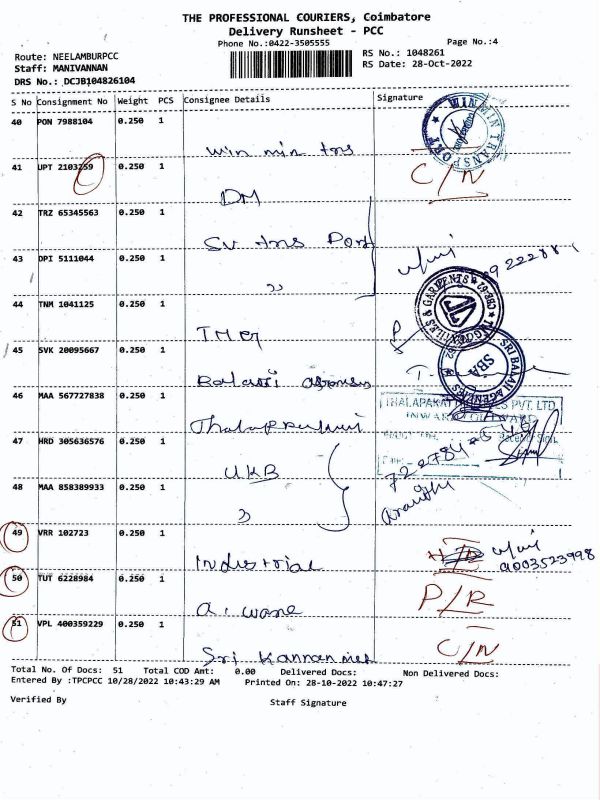 THE PROFESSIONAL COURIERS, Coimbatore
Delivery Runsheet - PCC
Phone No.:0422-3505555
Page No.:4
Route: NEELAMBURPCC
RS No.: 1048261
Staff: MANIVANNAN
RS Date: 28-Oct-2022
DRS No.: DCJB104826104
S No Consignment No Weight PCS Consignee Details Signature
40 PON 7988104 0.250 1
Win min tns
WIN MIN TRANSPORT
41 UPT 2103259 0.250 1
C/N
DM
42 TRZ 65345563 0.250 1
SV tns Port
43 DPI 5111044 0.250 1
44 TNM 1041125 0.250 1
45 SVK 20095667 0.250 1
SRI BALAJI AGENCIES
SBA
46 MAA 567727838 0.250 1
47 HRD 305636576 0.250 1
UKB
48 MAA 858389933 0.250 1
49 VRR 102723 0.250 1
Industrial
9003523998
50 TUT 6228984 0.250 1
P/R
A. wane
51 VPL 400359229 0.250 1
C/N
Sri Kannan
Total No. Of Docs: 51 Total COD Amt: 0.00 Delivered Docs: Non Delivered Docs:
Entered By :TPCPCC 10/28/2022 10:43:29 AM Printed On: 28-10-2022 10:47:27
Verified By
Staff Signature